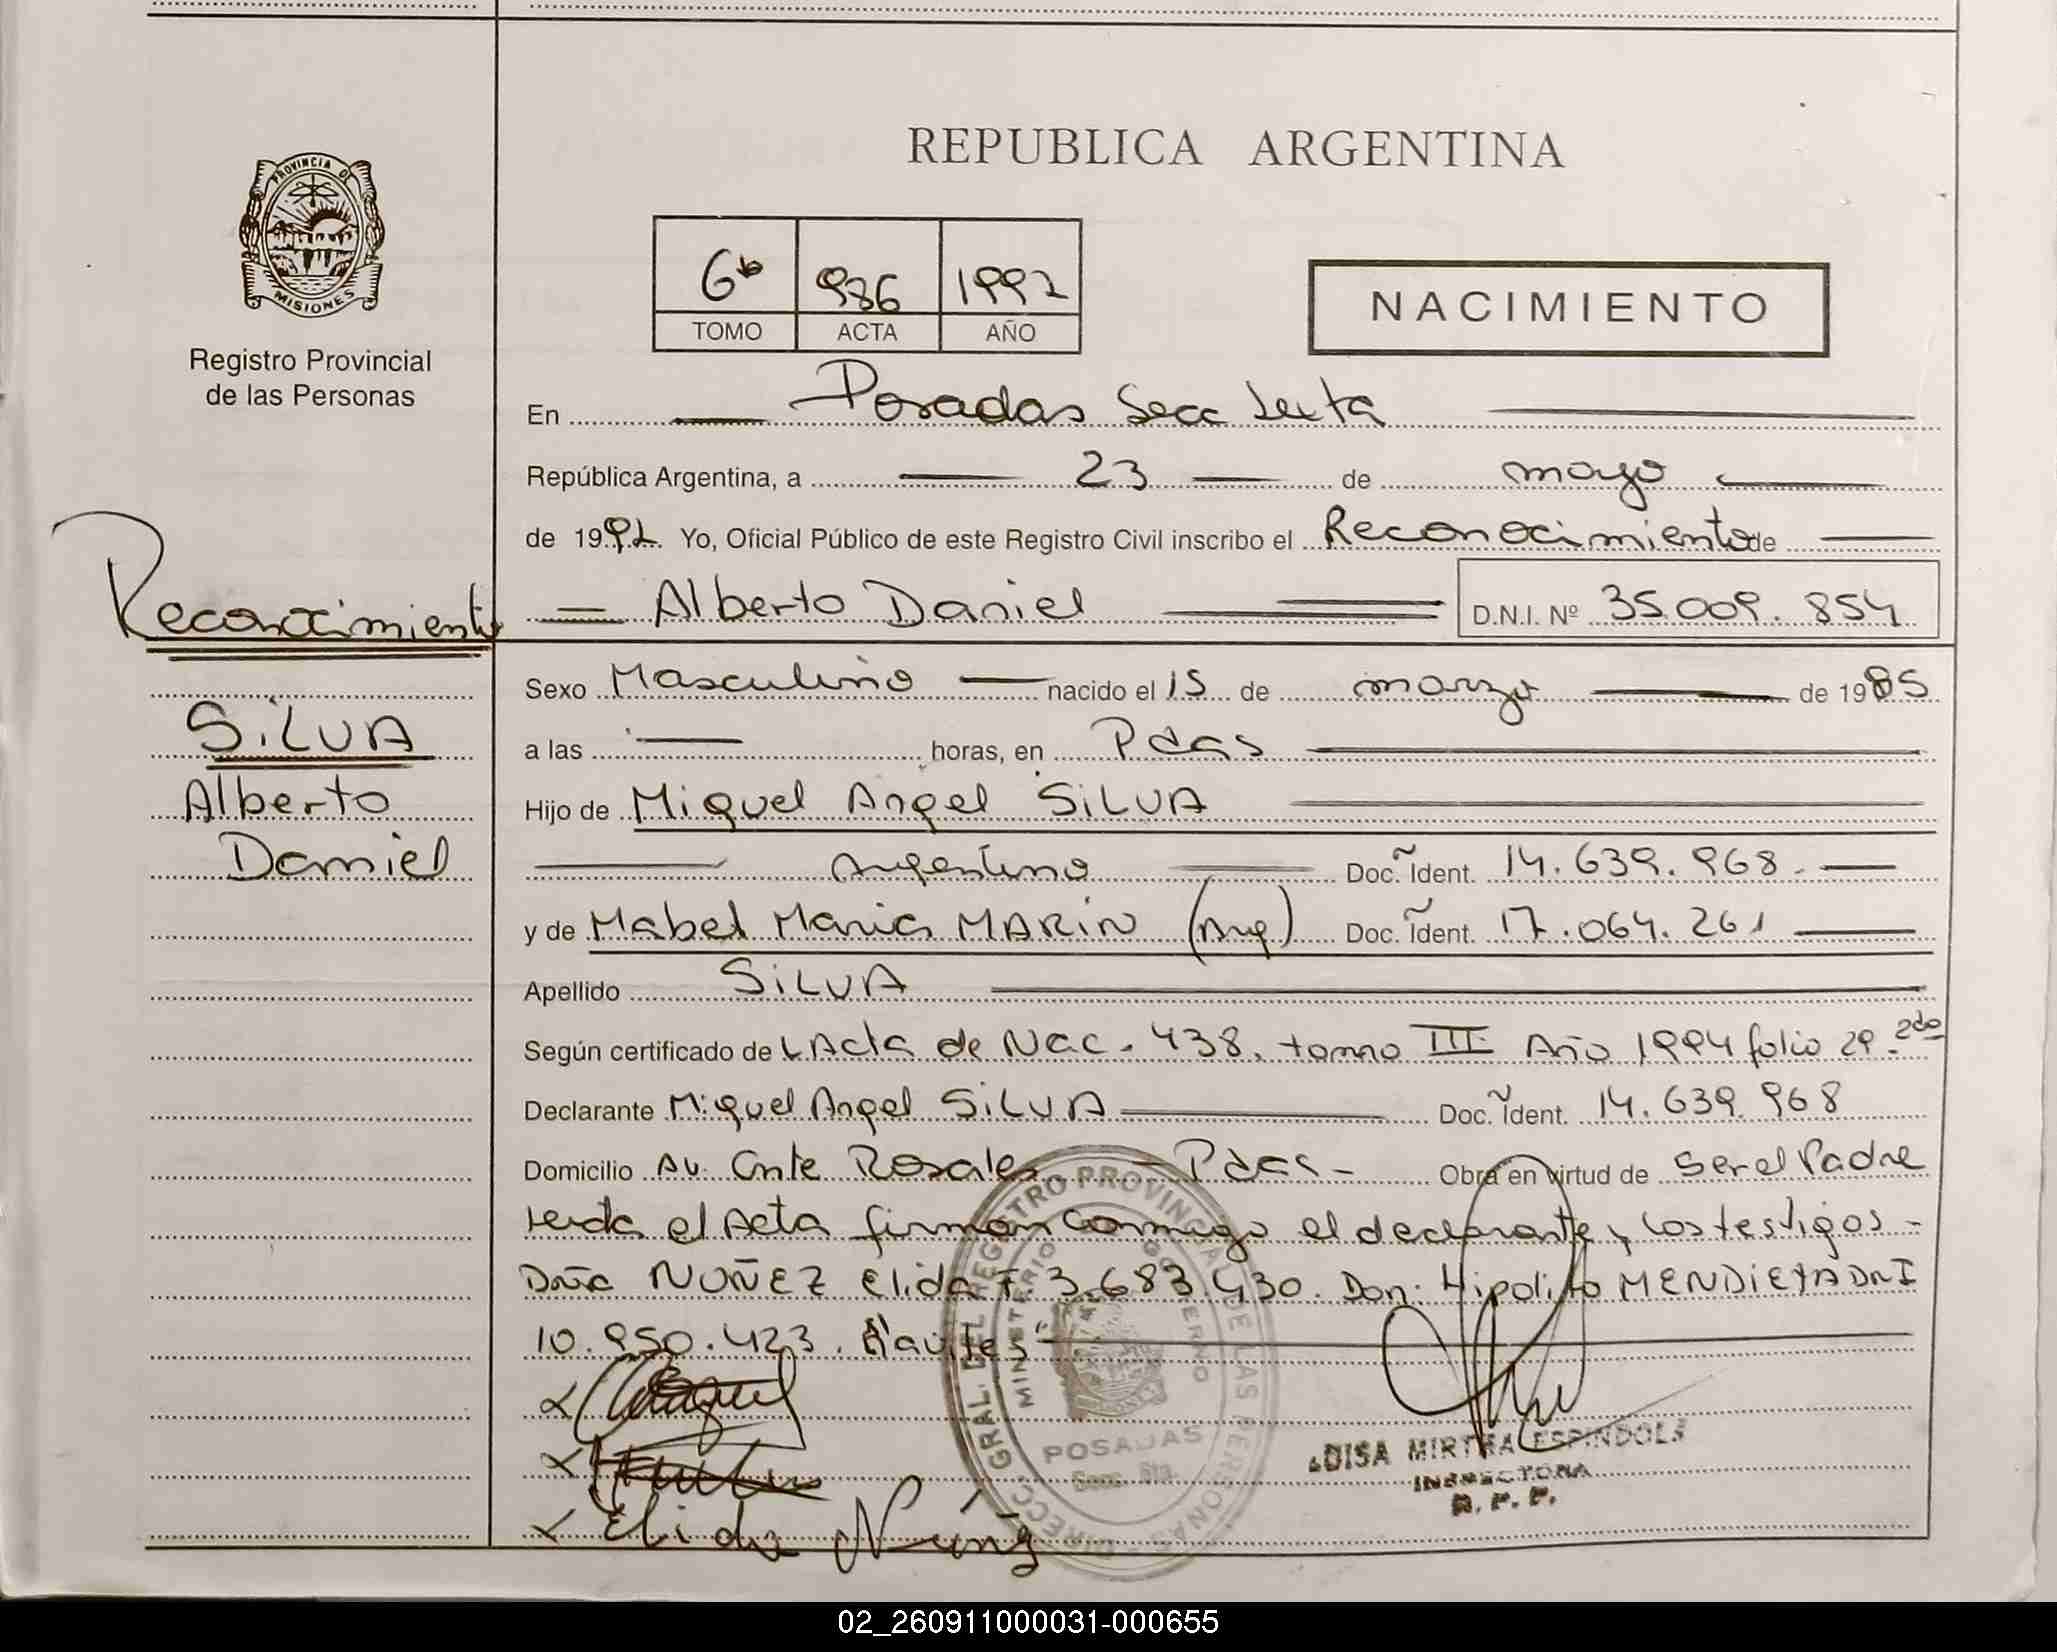 REPUBLICA ARGENTINA
PROVINCIA DE
MISIONES
Registro Provincial
de las Personas
6to 986 1992
TOMO ACTA AÑO
NACIMIENTO
En Posadas Secc Sexta
República Argentina, a 23 de mayo
de 1992 Yo, Oficial Público de este Registro Civil inscribo el Reconocimiento de
Alberto Daniel D.N.I. Nº 35.009.854
Reconocimiento
SiLVA
Alberto
Daniel
Sexo Masculino nacido el 15 de marzo de 1985
a las horas, en Pdas
Hijo de Miguel Angel SiLVA
Argentino Doc. Ident. 14.639.968.
y de Mabel Maria MARiN (Arg) Doc. Ident. 17.064.261
Apellido SiLVA
Según certificado de Acta de Nac. 438, tomo III Año 1994 folio 29. 2do
Declarante Miguel Angel SiLVA Doc. Ident. 14.639.968
Domicilio Av. Cnte Rosales - Pdas - Obra en virtud de Ser el Padre
Leida el Acta firman conmigo el declarante y los testigos -
Doña NUÑEZ Elida F. 3.683.430. Don: Hipolito MENDIETA DNI
10.950.423.
Elida Núñez
DIRECC. GRAL. DEL REGISTRO PROVINCIAL DE LAS PERSONAS
MINISTERIO GOBIERNO
POSADAS
Secc. 6ta.
MIRTHA ESPINDOLA
INSPECTORA
R. P. P.
02_260911000031-000655